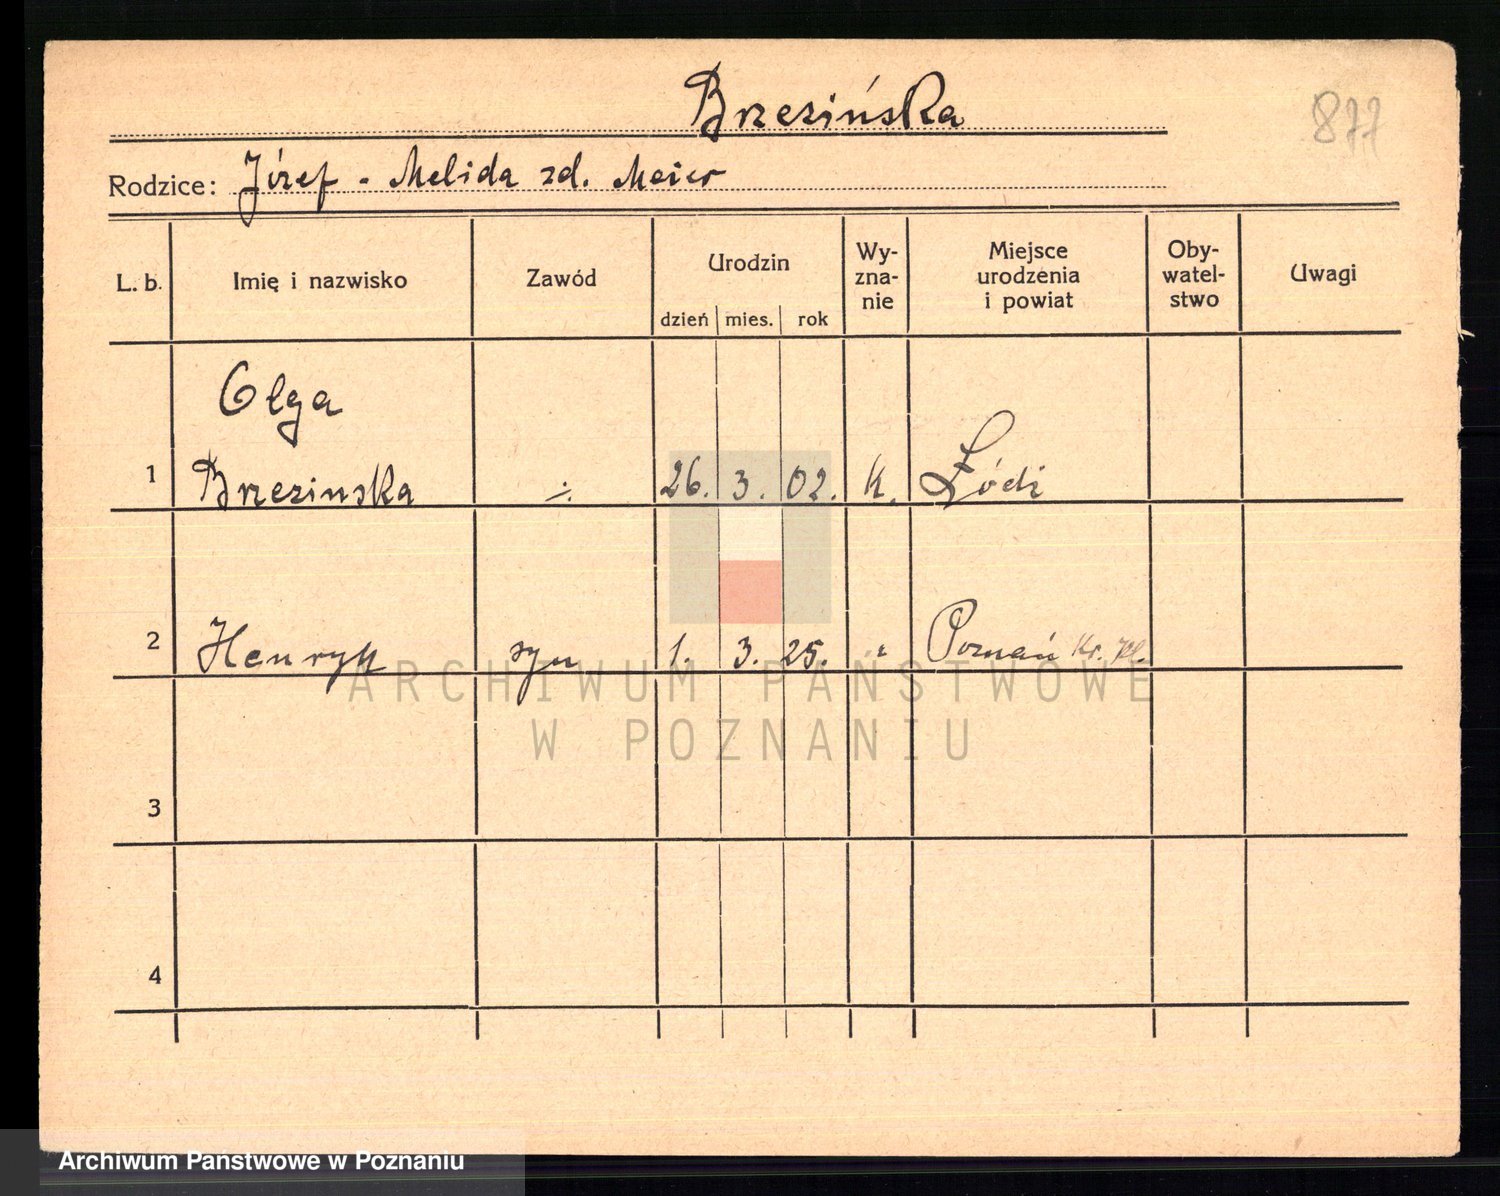 Brzezińska
877
Rodzice: Józef - Melida zd. Meier
L. b. Imię i nazwisko Zawód Urodzin dzień mies. rok Wy-zna-nie Miejsce urodzenia i powiat Oby-watel-stwo Uwagi
Olga
1 Brzezinska ÷ 26. 3. 02. k. Łódź
2 Henryk syn 1. 3. 25. " Poznań
3
4
ARCHIWUM PAŃSTWOWE
W POZNANIU
Archiwum Państwowe w Poznaniu